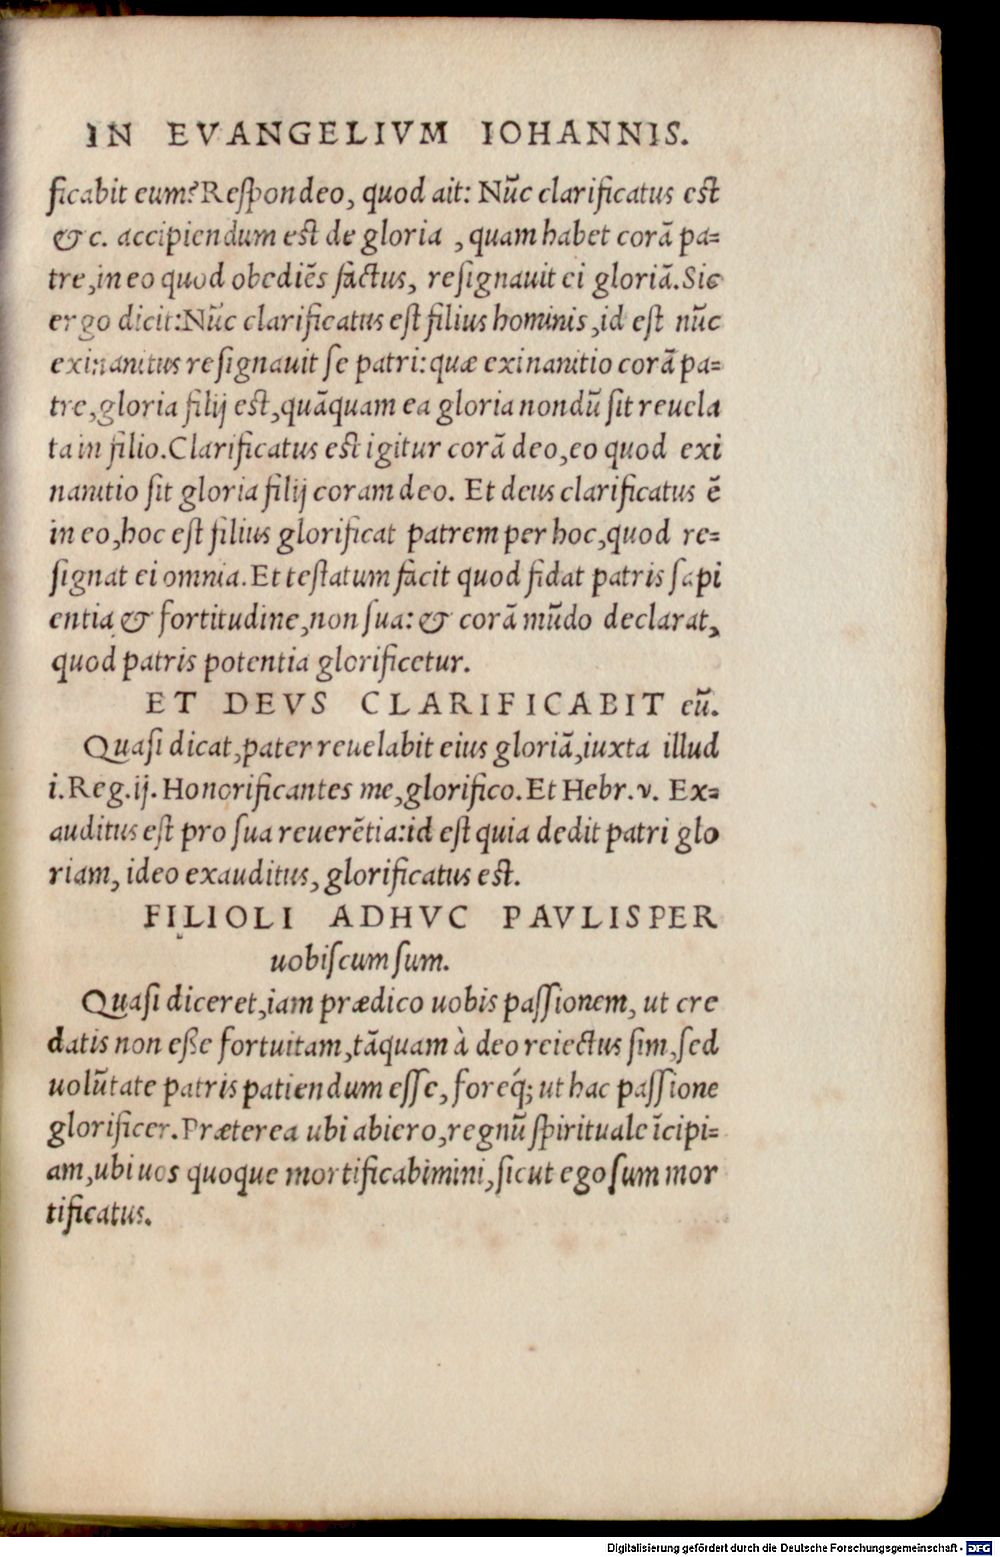 IN EVANGELIVM IOHANNIS.
ficabit eum? Respondeo, quod ait: Nũc clarificatus est
& c. accipiendum est de gloria , quam habet corã pa=
tre, in eo quod obediẽs factus, resignauit ei gloriã. Sic
ergo dicit: Nũc clarificatus est filius hominis, id est nũc
exinanitus resignauit se patri: quæ exinanitio corã pa=
tre, gloria filij est, quãquam ea gloria nondũ sit reuela
ta in filio. Clarificatus est igitur corã deo, eo quod exi
nanitio sit gloria filij coram deo. Et deus clarificatus ẽ
in eo, hoc est filius glorificat patrem per hoc, quod re=
signat ei omnia. Et testatum facit quod fidat patris sapi
entia & fortitudine, non sua: & corã mũdo declarat,
quod patris potentia glorificetur.
ET DEVS CLARIFICABIT eũ.
Quasi dicat, pater reuelabit eius gloriã, iuxta illud
i. Reg. ij. Honorificantes me, glorifico. Et Hebr. v. Ex=
auditus est pro sua reuerẽtia: id est quia dedit patri glo
riam, ideo exauditus, glorificatus est.
FILIOLI ADHVC PAVLISPER
uobiscum sum.
Quasi diceret, iam prædico uobis passionem, ut cre
datis non eße fortuitam, tãquam à deo reiectus sim, sed
uolũtate patris patiendum esse, foreq́; ut hac passione
glorificer. Præterea ubi abiero, regnũ spirituale ĩcipi=
am, ubi uos quoque mortificabimini, sicut ego sum mor
tificatus.
Digitalisierung gefördert durch die Deutsche Forschungsgemeinschaft - DFG